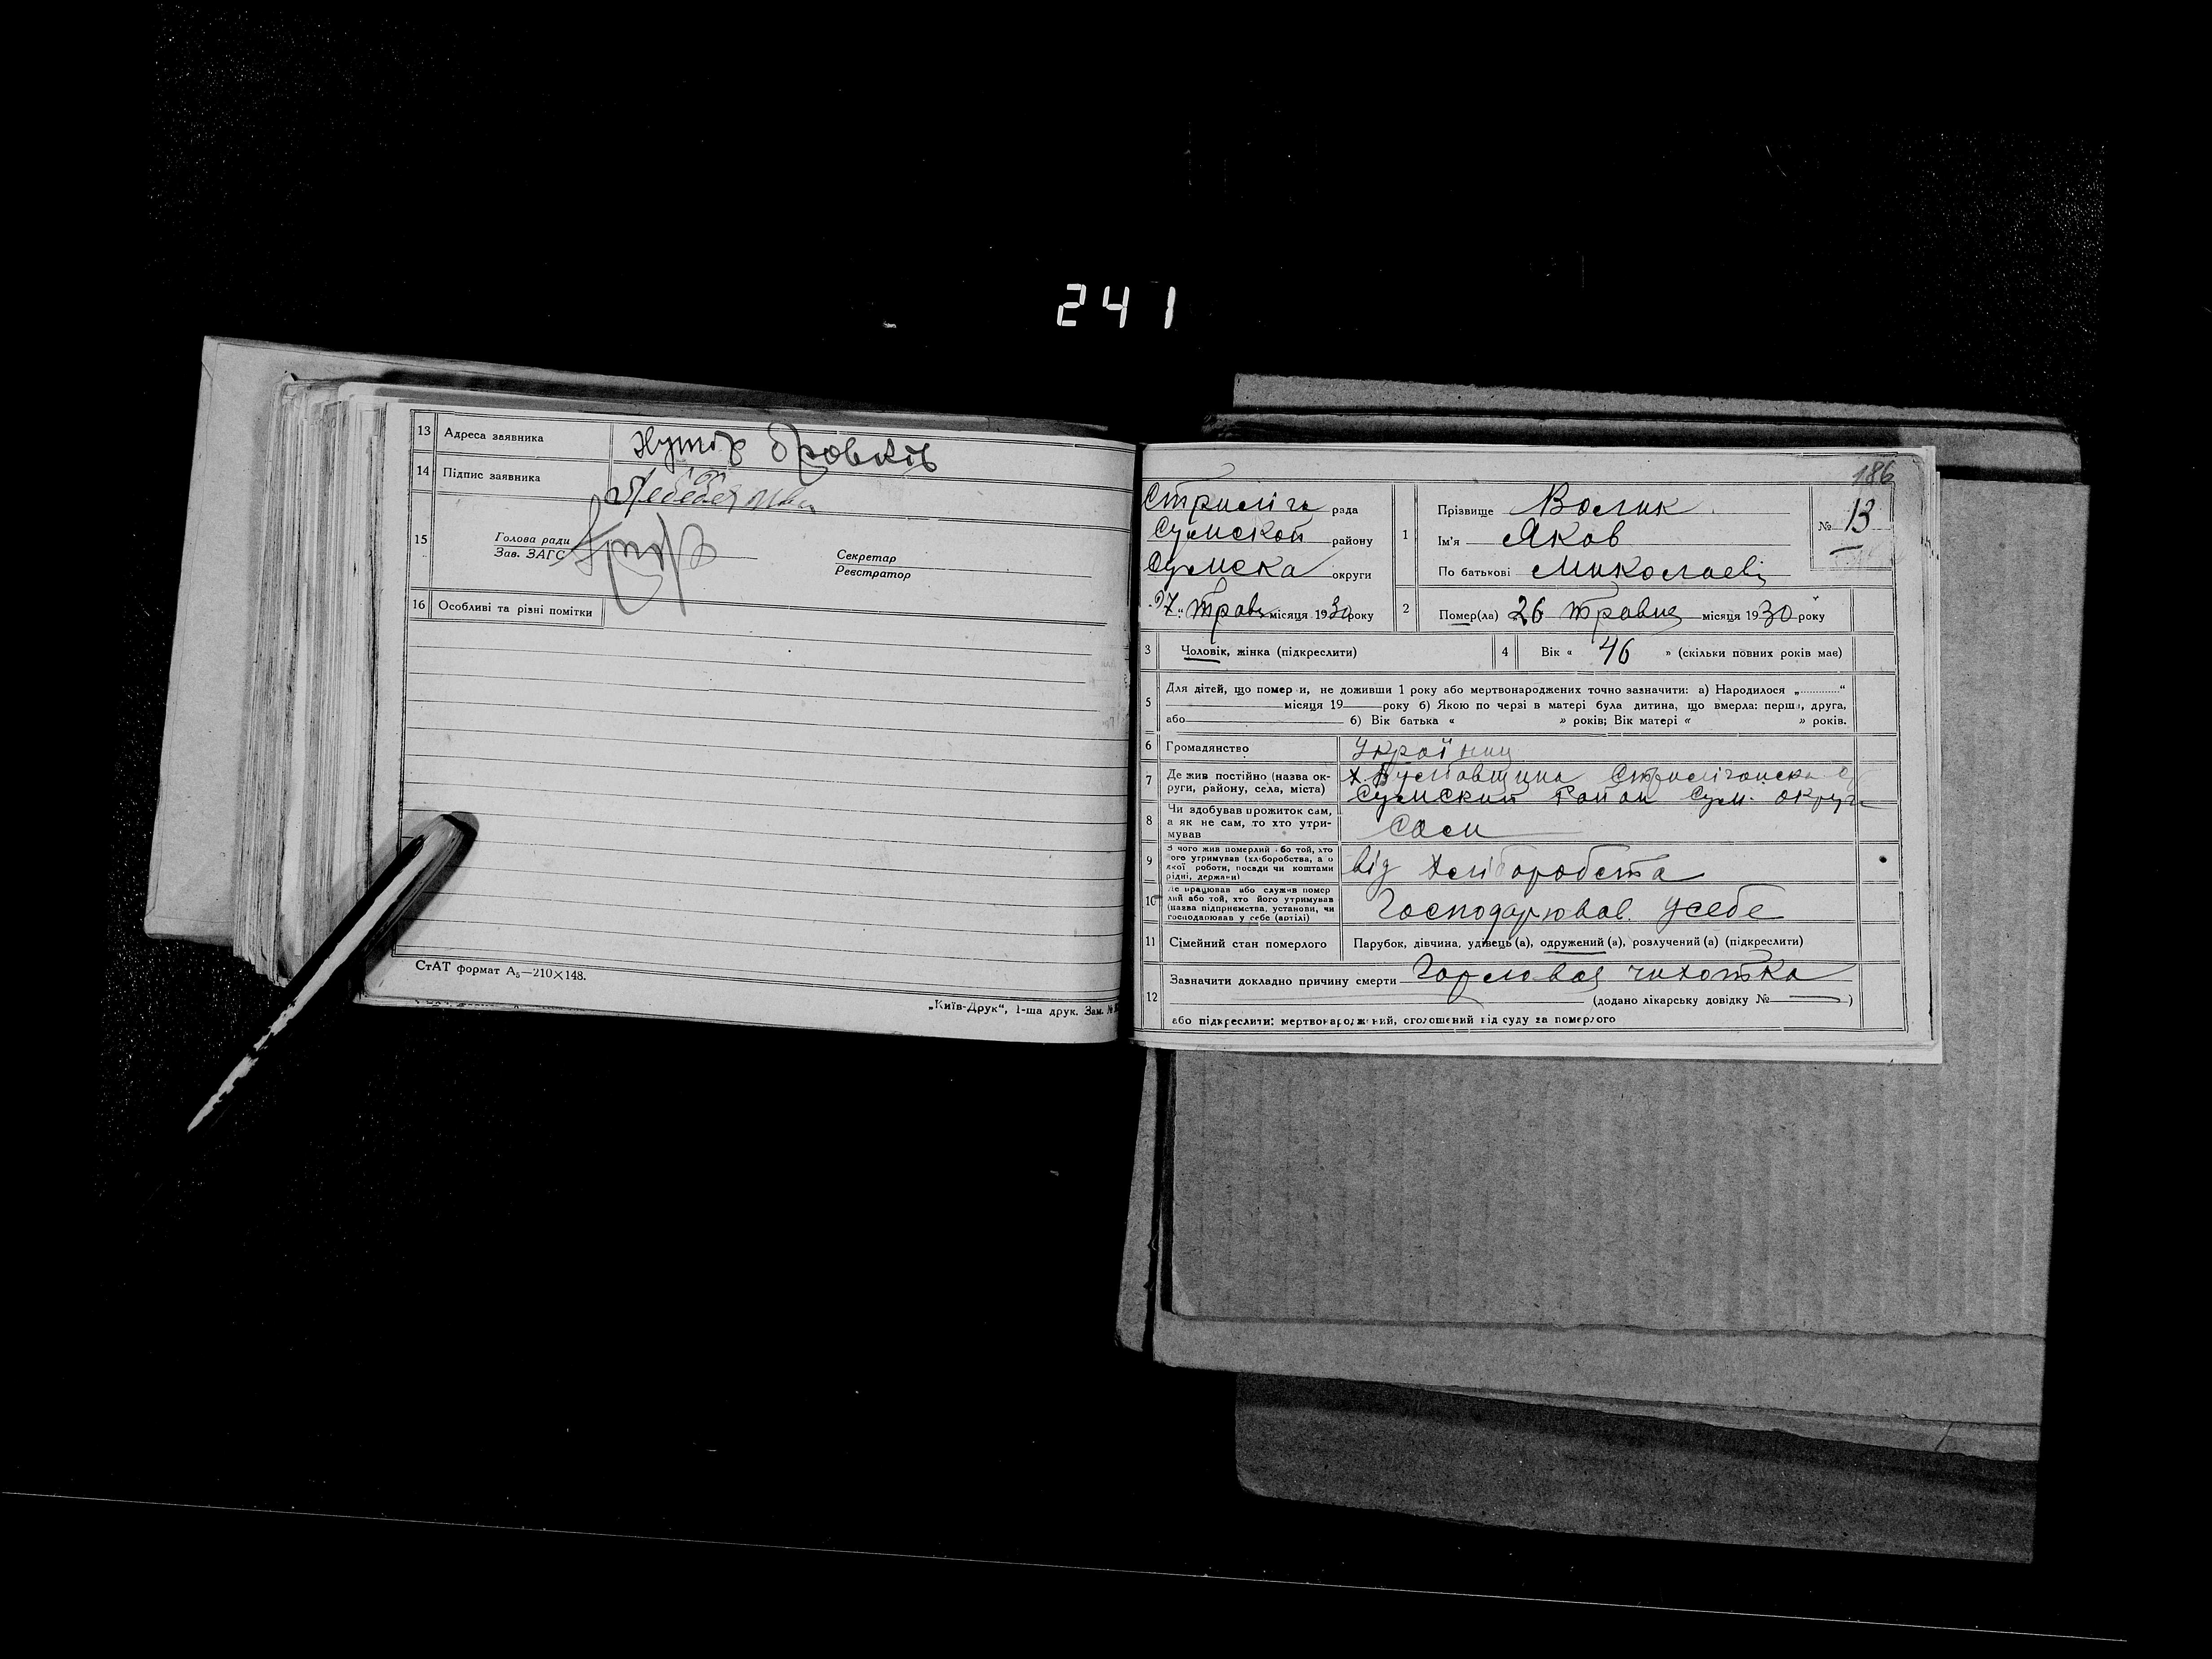 241
13 Адреса заявника хутір Бровків
14 Підпис заявника
15 Голова ради
Зав. ЗАГС
Секретар
Реєстратор
16 Особливі та різні помітки
СтАТ формат А₅—210×148.
„Київ-Друк“, 1-ша друк. Зам. №
186
рада
Сумской району
Сумска округи
27 " Трав місяця 1930 року
1 Прізвище Волик
Ім'я Яков
По батькові Миколаеві
№ 13
2 Помер(ла) 26 травня місяця 1930 року
3 Чоловік, жінка (підкреслити)
4 Вік « 46 » (скільки повних років має)
5 Для дітей, що помер и, не доживши 1 року або мертвонароджених точно зазначити: а) Народилося „............“
місяця 19 року б) Якою по черзі в матері була дитина, що вмерла: перша, друга,
або б) Вік батька « » років; Вік матері « » років.
6 Громадянство Україниц
7 Де жив постійно (назва ок-
руги, району, села, міста)
Сумский Район Сум. округи
8 Чи здобував прожиток сам,
а як не сам, то хто утри-
мував
Сам
9 З чого жив померлий або той, хто
його утримував (хліборобства, а о
якої роботи, посади чи коштами
рідні, держави)
від Хліборобста
10 Де працював або служив помер
лий або той, хто його утримував
(назва підприємства, установи, чи
господарював у себе (артілі)
Господарював усебе
11 Сімейний стан померлого Парубок, дівчина, удівець (а), одружений (а), розлучений (а) (підкреслити)
12 Зазначити докладно причину смерти Горловая чихотка
(додано лікарську довідку № — )
або підкреслити: мертвонароджений, оголошений від суду за померлого